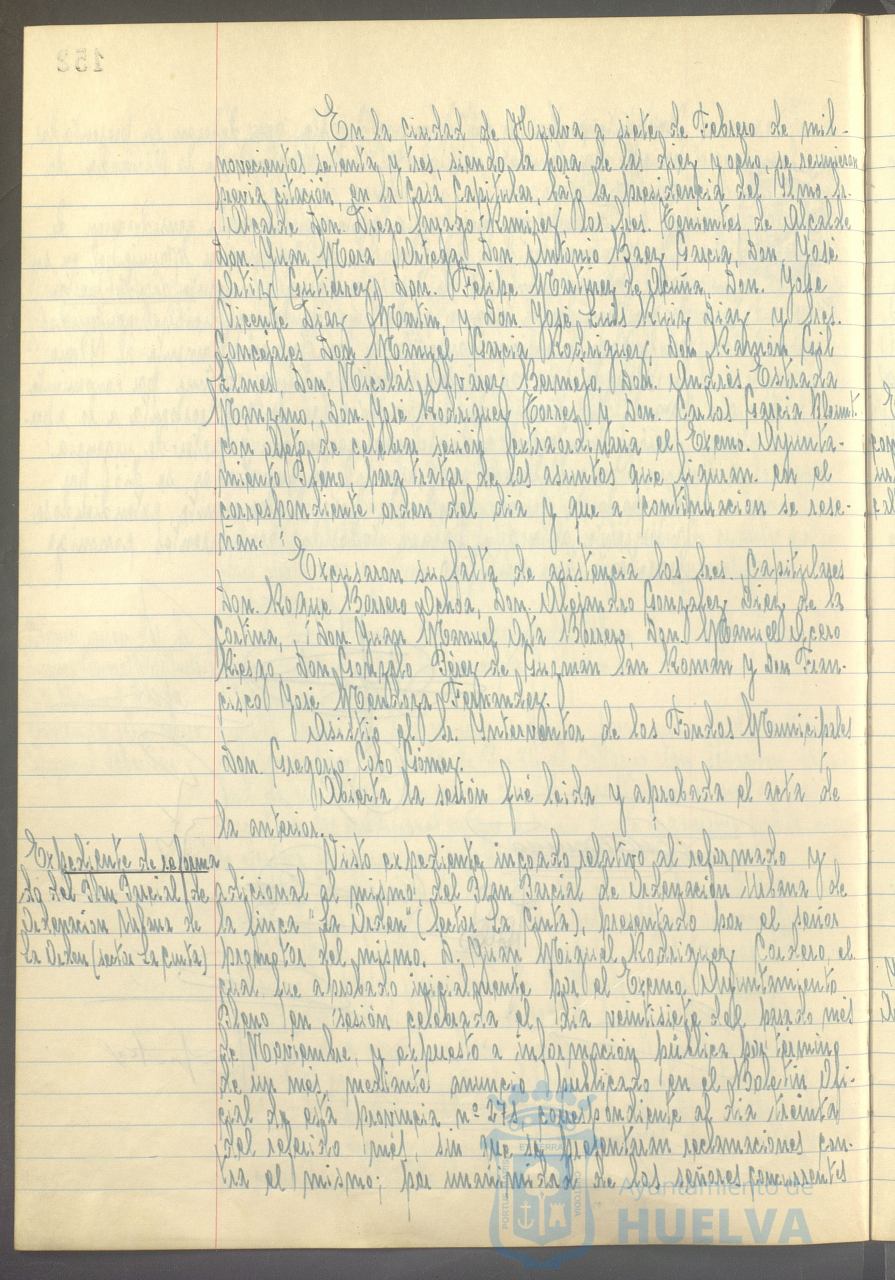 152
En la ciudad de Huelva a siete de Febrero de mil-
novecientos setenta y tres, siendo la hora de las diez y ocho, se reunieron
previa citación, en la Casa Capitular, bajo la presidencia del Iltmo. Sr.
Alcalde Don. Diego Ramirez, los Sres. Tenientes de Alcalde
Don. Juan Mora Don Antonio Baez Garcia, Don. José
Ortiz Gutierrez, Don. Felipe Martinez de Acuña, Don. José
Vicente Diaz Martin, y Don. José Luis Ruiz Diaz y Sres.
Concejales Don Manuel Garcia Rodriguez, Don Ramón Gil
Don. Nicolás Alvarez Bermejo, Don. Andrés Estrada
Manzano, Don. José Rodriguez Torres y Don. Carlos Garcia
con objeto de celebrar sesión extraordinaria el Excmo. Ayunta-
miento Pleno, para tratar de los asuntos que figuran en el
correspondiente orden del dia y que a continuación se rese-
ñan:
Excusaron su falta de asistencia los Sres. Capitulares
Don. Roque Barrero Ochoa, Don. Alejandro Gonzalez Diez de la
Cortina, Don. Juan Manuel Orta Borrero, Don. Manuel Acero
Riesgo, Don Gonzalo Pérez de Guzmán San Román y Don Fran-
cisco José Mendoza Fernandez.
Asistió el Sr. Interventor de los Fondos Municipales
Don. Gregorio Cobo Gomez.
Abierta la sesión fué leida y aprobada el acta de
la anterior.
Expediente de reforma
do del Plan Parcial de
Ordenacion Urbana de
La Orden (sector La Cinta)
Visto expediente incoado relativo al reformado y
adicional al mismo, del Plan Parcial de Ordenación Urbana de
la finca "La Orden" (Sector La Cinta), presentado por el señor
promotor del mismo. D. Juan Miguel Rodriguez Cordero, el
cual fue aprobado inicialmente por el Excmo. Ayuntamiento
Pleno en sesión celebrada el dia veintisiete del pasado més
de Noviembre, y expuesto a información pública por término
de un més, mediante anuncio publicado en el Boletín Ofi-
cial de esta provincia nº 273 correspondiente al dia treinta
del referido més, sin que se presentaran reclamaciones con-
tra el mismo; por unanimidad de los señores concurrentes
Ayuntamiento de
HUELVA